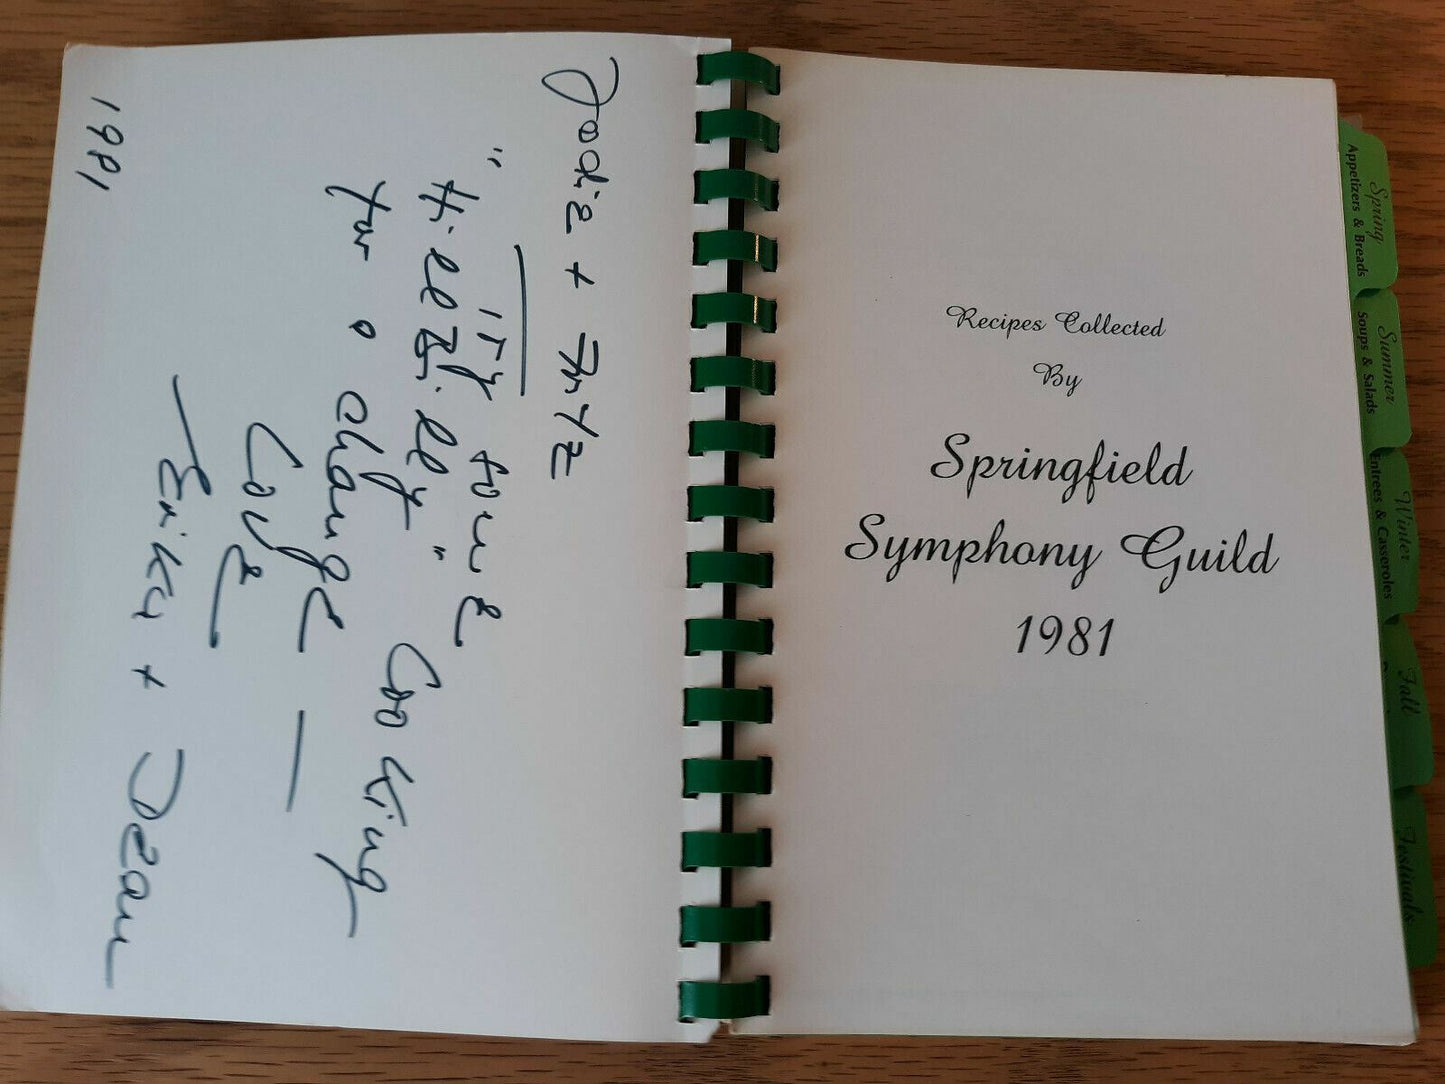 Jodie + Fritz
Try some
"Hillbilly" Cooking
for a change —
Love
Erika + Dean
1981
Recipes Collected
By
Springfield
Symphony Guild
1981
Spring
Appetizers & Breads
Summer
Soups & Salads
Winter
Entrees & Casseroles
Fall
Festivals